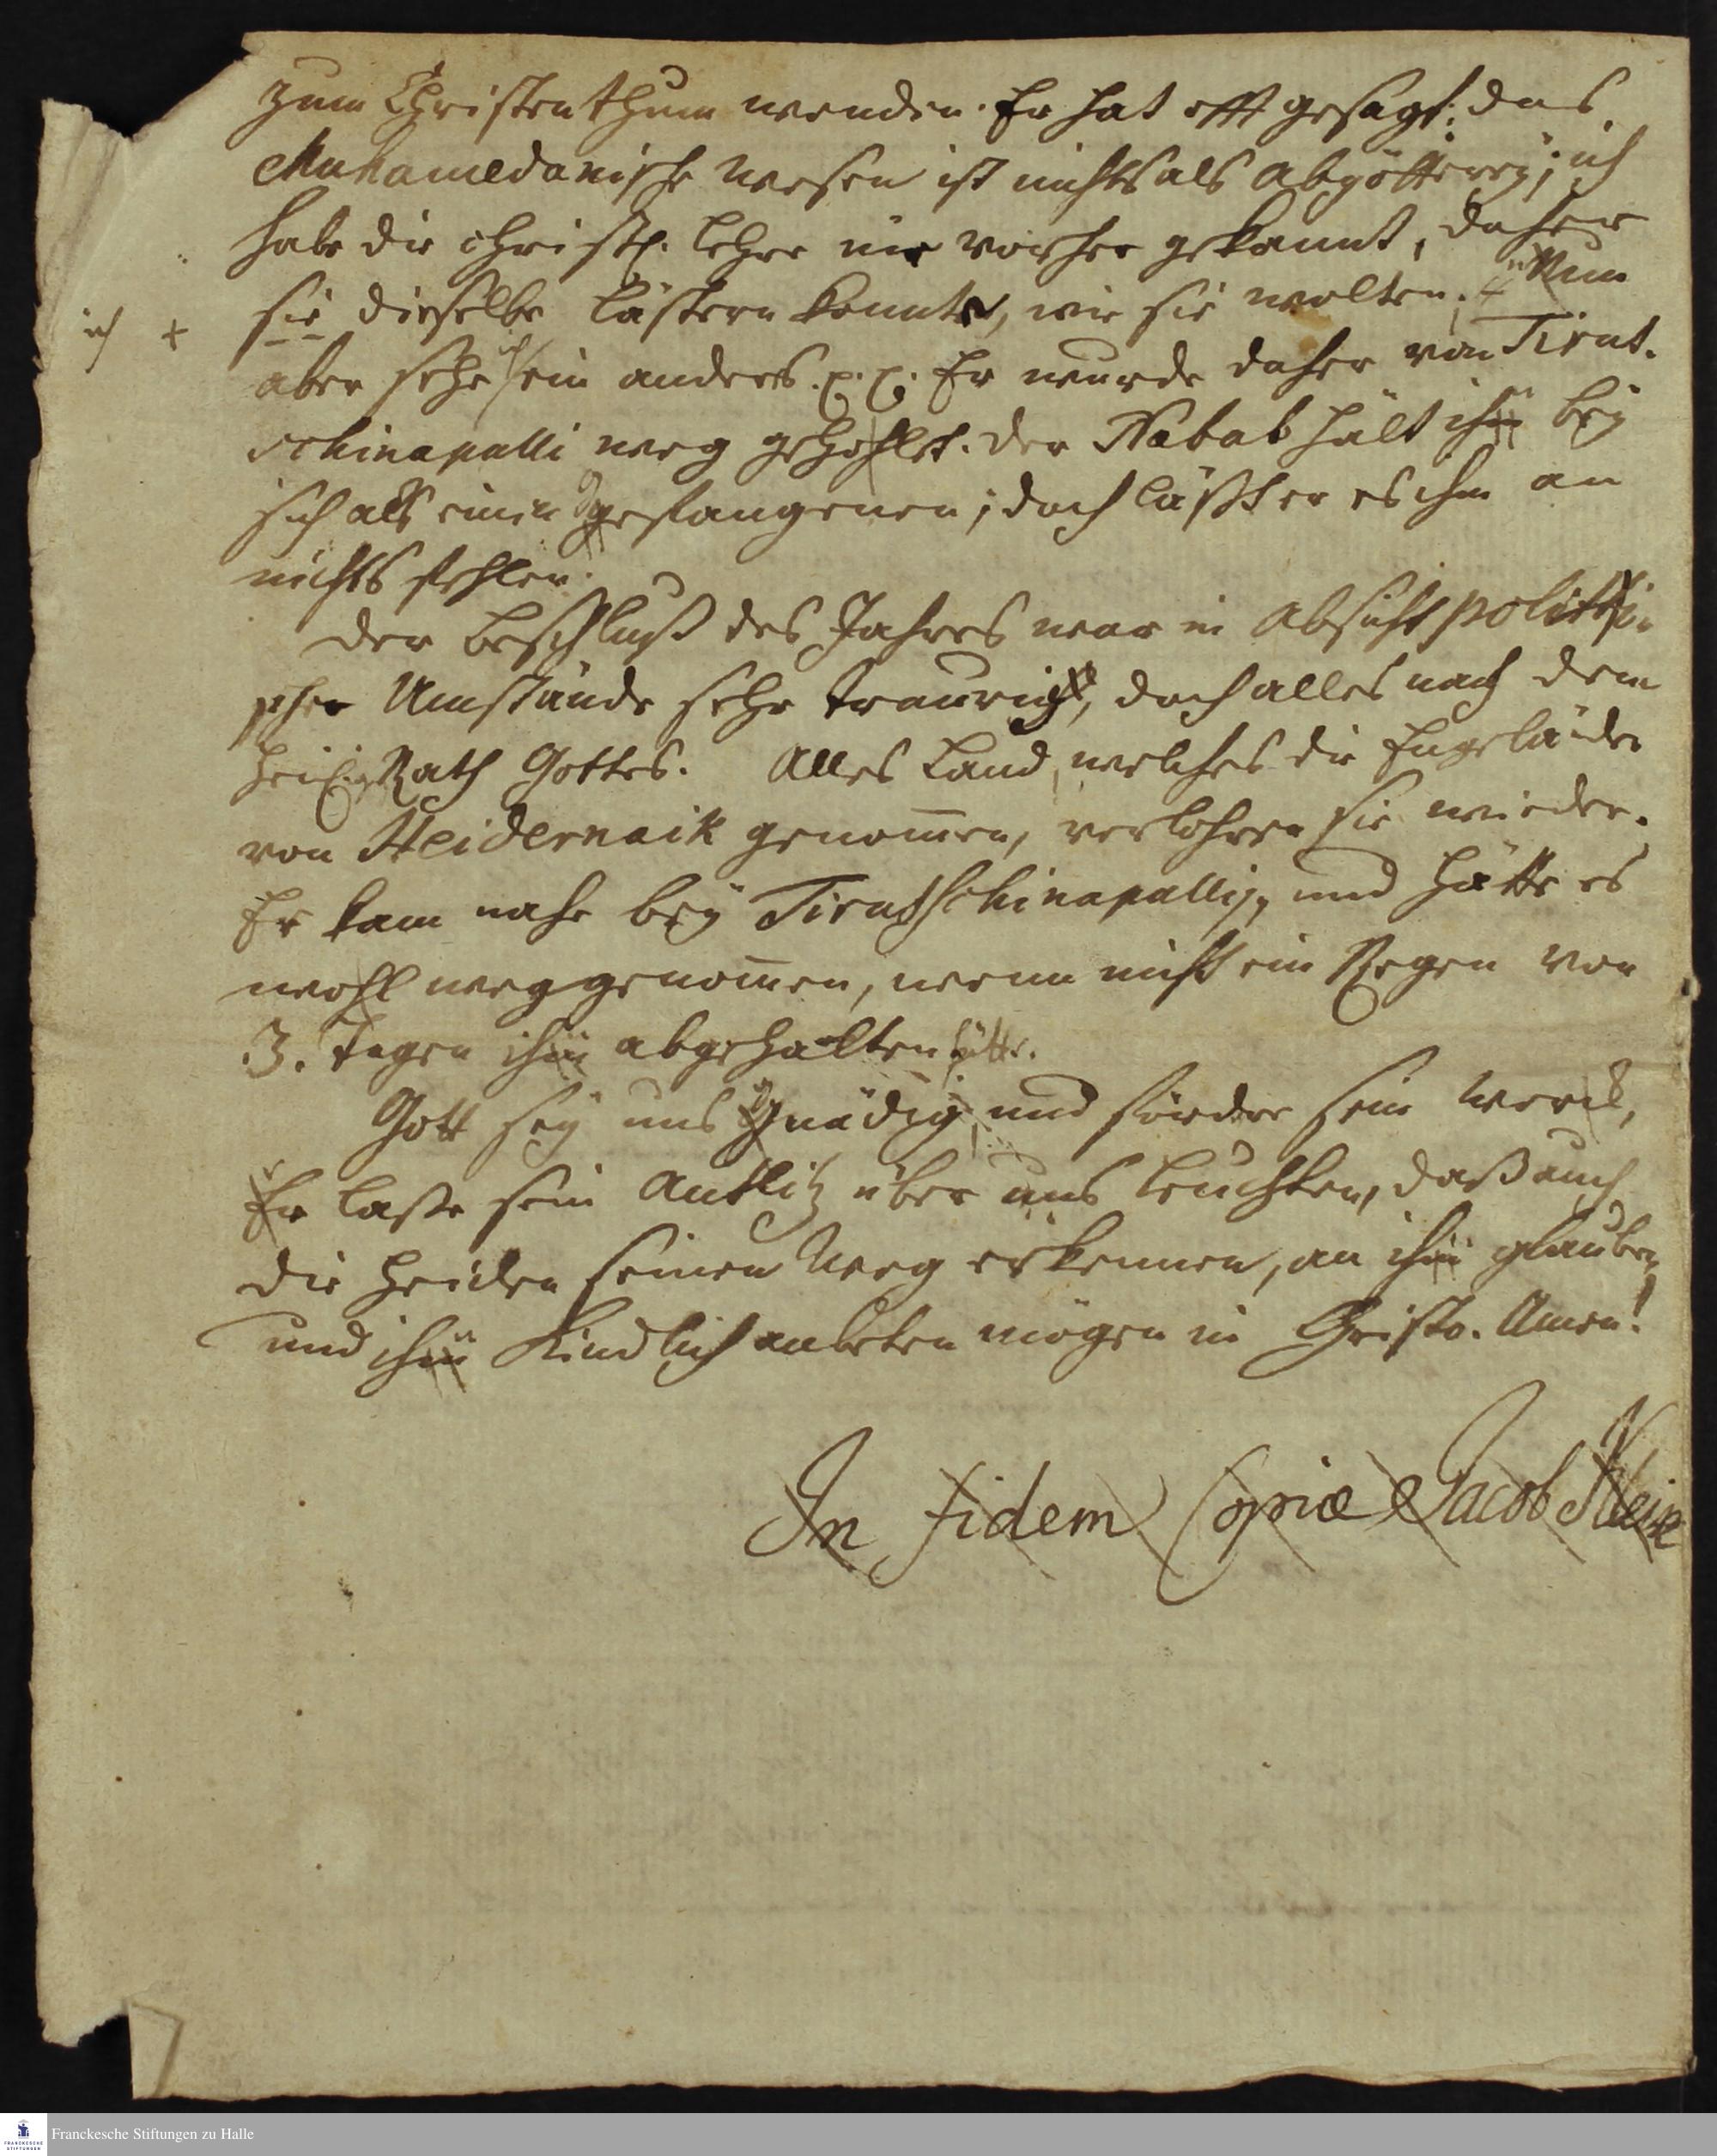 zum Christenthum wenden. Er hat offt gesagt: das
Muhamedanische Wesen ist nichts als Abgötterey; ich
habe die christl. Lehre nie vorher gekannt, daher
ich + sie dieselbe lästern konnte, wie sie wolten; Nun
aber sehe ich ein anders. p. p. Er wurde daher von Tirut.
schinapalli weg gehohlet. Der Nabab hält ihn bey
sich als einen gefangenen; doch läßt er es ihm an
nichts fehlen.
Der Beschluß des Jahres war in Absicht politi-
scher Umstände sehr traurig, doch alles nach dem
heil. Rath Gottes. Alles Land, welches die Engeländer
von Heidernaik genom̄en, verlohren sie wieder.
Er kam nahe bey Tirutschinapalli, und hätte es
wohl weggenom̄en, wenn nicht ein Regen von
3. Tagen ihn abgehalten hätte.
Gott sey uns gnädig und fördere sein Werck,
Er laße sein Antlitz über uns leuchten, daß auch
die Heiden seinen Weg erkennen, an ihn glauben
und ihn kindlich anbeten mögen in Christo. Amen!
In Fidem Copiæ Jacob Klein
Franckesche Stiftungen zu Halle
FRANCKESCHE
STIFTUNGEN